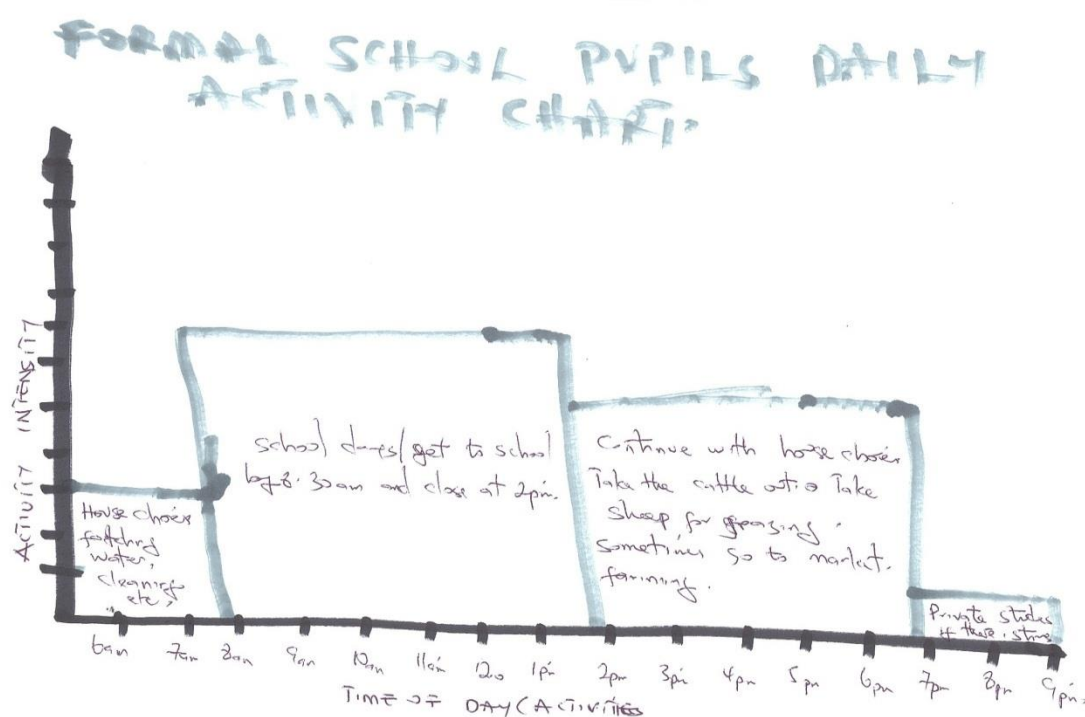 FORMAL SCHOOL PUPILS DAILY
ACTIVITY CHART.
ACTIVITY INTENSITY
House chores
fetching
water,
cleaning
etc,
school days/get to school
by 8.30am and close at 2pm.
Continue with house chores
Take the cattle out. Take
sheep for grazing.
sometimes go to market.
farming.
Private studies
if there.
6am 7am 8am 9am 10am 11am 12 1pm 2pm 3pm 4pm 5pm 6pm 7pm 8pm 9pm.
TIME OF DAY (ACTIVITIES